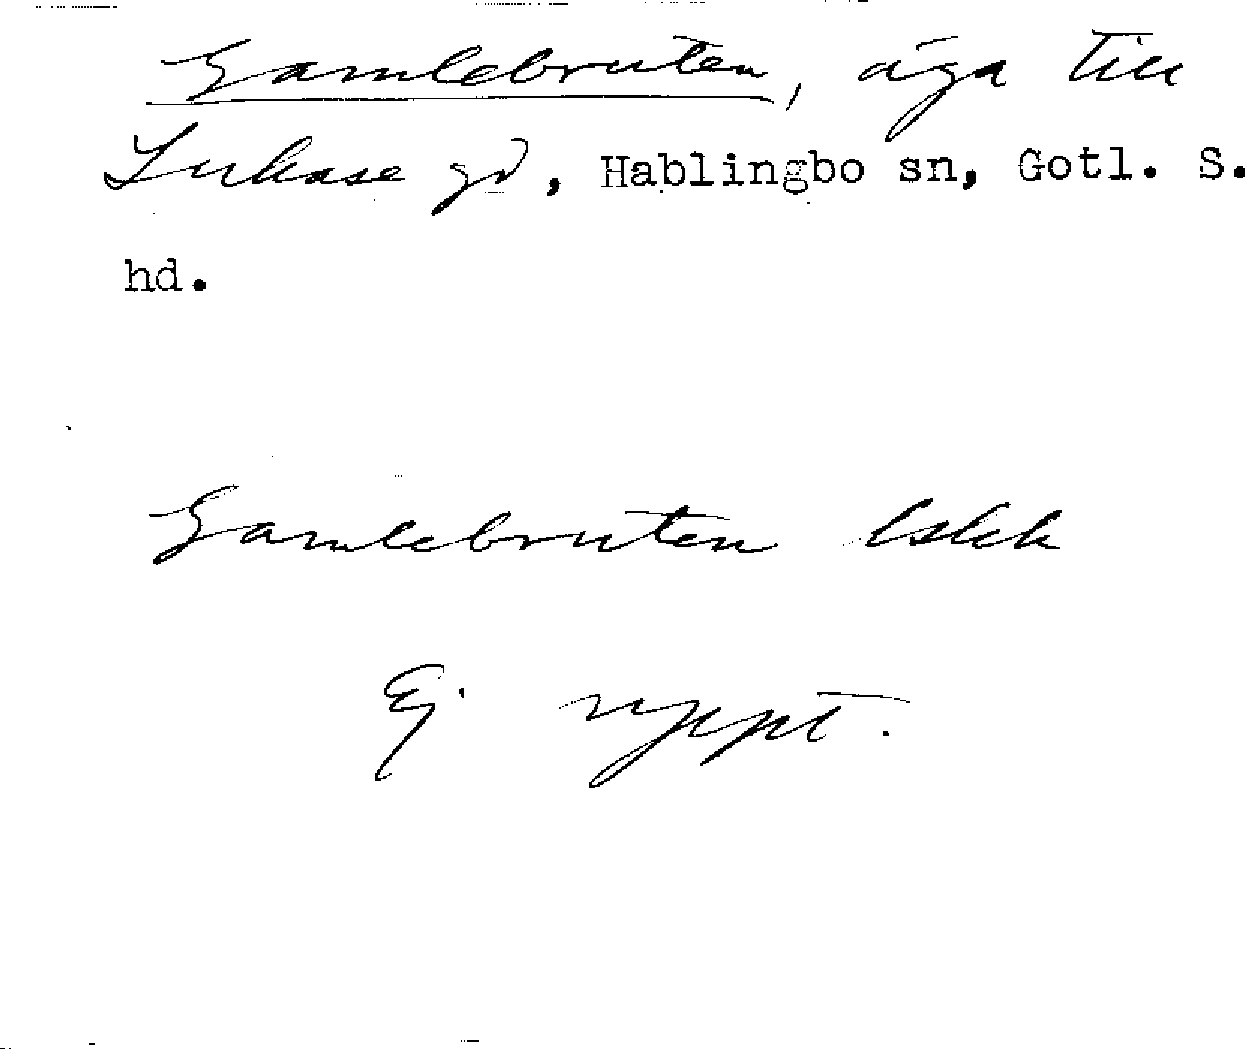 Gamlebruten, äga till
Lukase gd, Hablingbo sn, Gotl. S.
hd.
Gamlebruten lskk
Ej uppt.